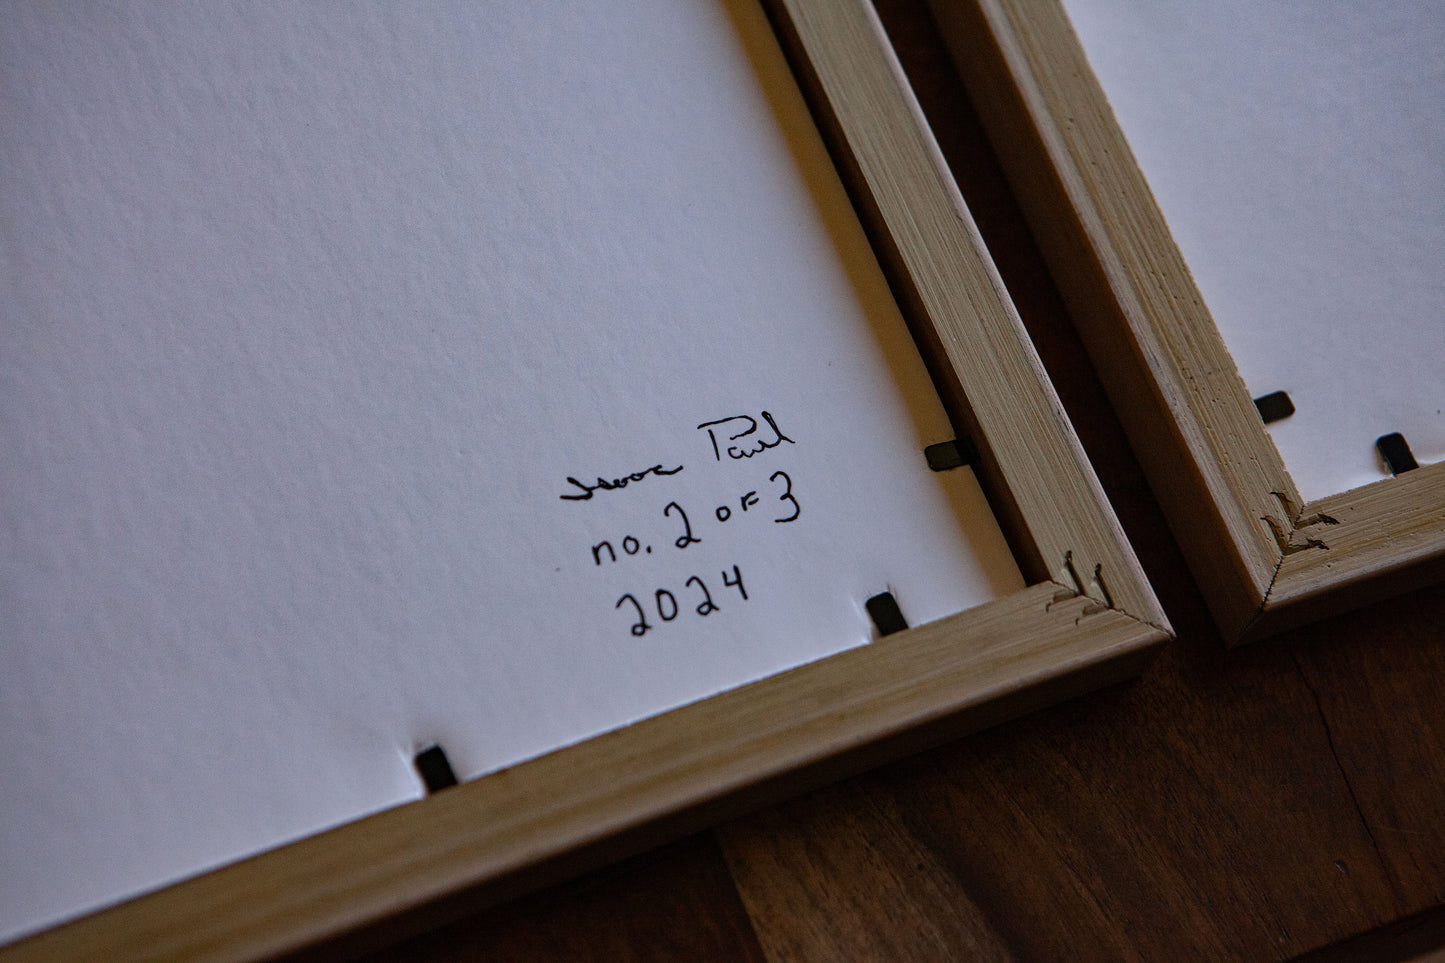 Isaac Paul
no. 2 of 3
2024